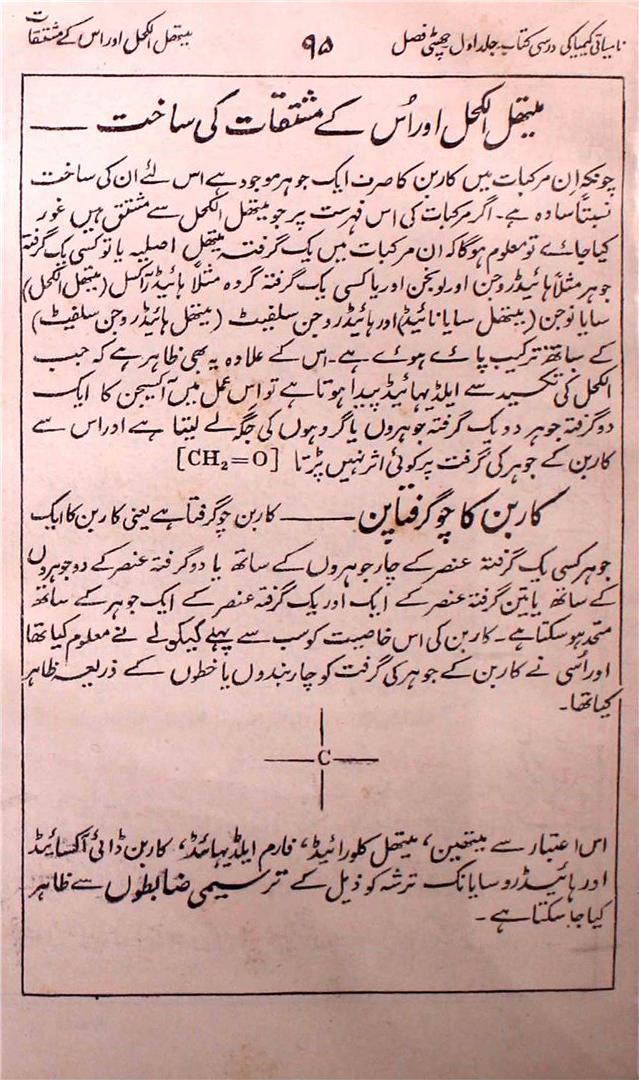 نامیاتی کیمیا کی درسی کتاب جلد اول چھٹی فصل ۹۵ میتھل الکحل اور اس کے مشتقات
میتھل الکحل اور اُس کے مشتقات کی ساخت ——
چونکہ اِن مرکبات میں کاربن کا صرف ایک جوہر موجود ہے اس لئے ان کی ساخت
نسبتاً سادہ ہے۔ اگر مرکبات کی اس فہرست پر جو میتھل الکحل سے مشتق ہیں غور
کیا جائے تو معلوم ہوگا کہ ان مرکبات میں یک گرفتہ میتھل اصلیہ یا تو کسی یک گرفتہ
جوہر مثلاً ہائیڈروجن اور لونجن اور یا کسی یک گرفتہ گروہ مثلاً ہائیڈرآکسل (میتھل الکحل)
سایانوجن (میتھل سایانائیڈ) اور ہائیڈروجن سلفیٹ (میتھل ہائیڈروجن سلفیٹ)
کے ساتھ ترکیب پائے ہوئے ہے۔ اس کے علاوہ یہ بھی ظاہر ہے کہ جب
الکحل کی تکسید سے ایلڈیہائیڈ پیدا ہوتا ہے تو اس عمل میں آکسیجن کا ایک
دو گرفتہ جوہر دو یک گرفتہ جوہروں یا گروہوں کی جگہ لے لیتا ہے اور اس سے
کاربن کے جوہر کی گرفت پر کوئی اثر نہیں پڑتا [CH₂=O]
کاربن کا چوگرفتاپن —— کاربن چوگرفتا ہے یعنی کاربن کا ایک
جوہر کسی یک گرفتہ عنصر کے چار جوہروں کے ساتھ یا دو گرفتہ عنصر کے دو جوہروں
کے ساتھ یا تین گرفتہ عنصر کے ایک اور یک گرفتہ عنصر کے ایک جوہر کے ساتھ
متحد ہو سکتا ہے۔ کاربن کی اس خاصیت کو سب سے پہلے کیکولے نے معلوم کیا تھا
اور اُسی نے کاربن کے جوہر کی گرفت کو چار بندوں یا خطوں کے ذریعہ ظاہر
کیا تھا۔
C
اس اعتبار سے میتھین، میتھل کلورائیڈ، فارم ایلڈیہائیڈ، کاربن ڈائی آکسائیڈ
اور ہائیڈروسایانک ترشہ کو ذیل کے ترسیمی ضابطوں سے ظاہر
کیا جا سکتا ہے۔